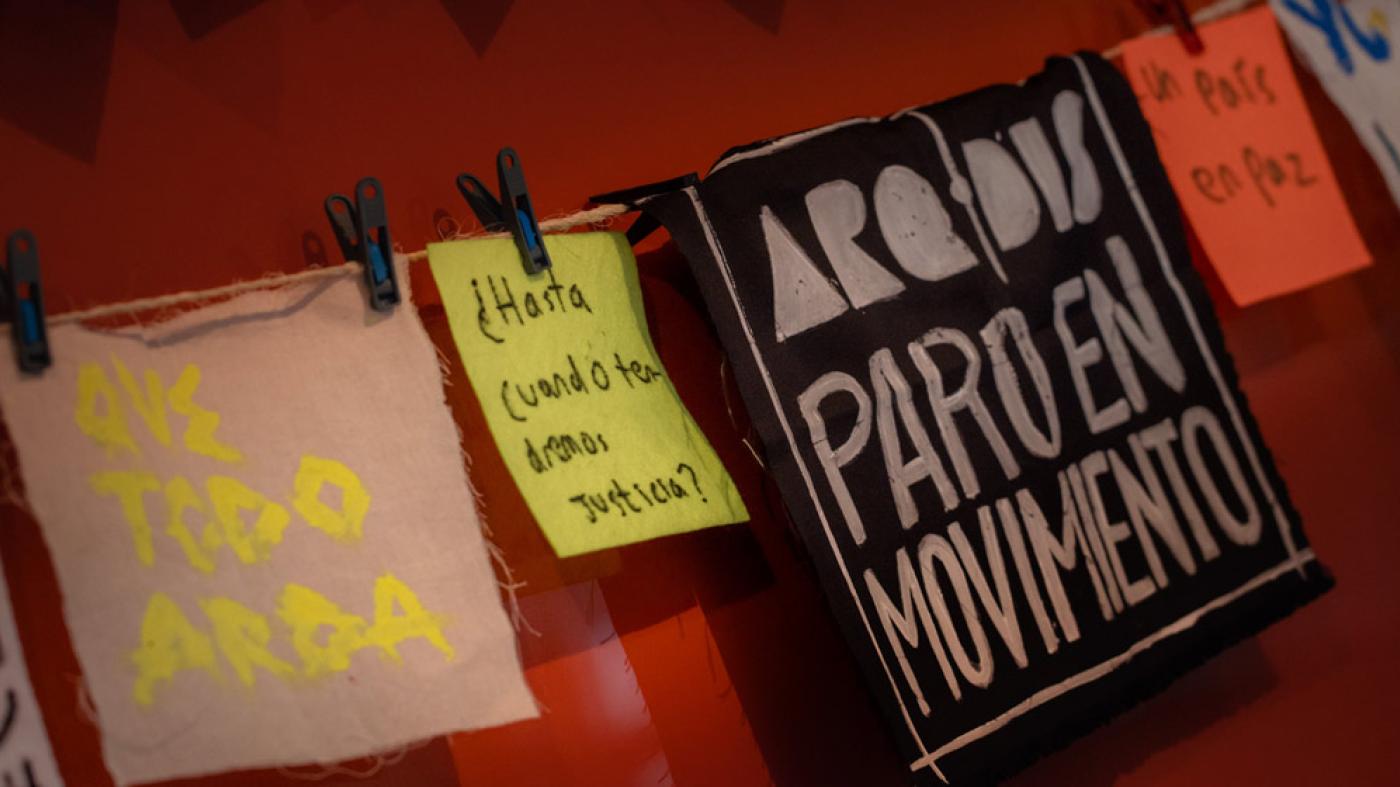 QUE
TODO
ARDA
¿Hasta
cuando ten-
dremos
justicia?
ARQ/DIS
PARO EN
MOVIMIENTO
Un país
en paz